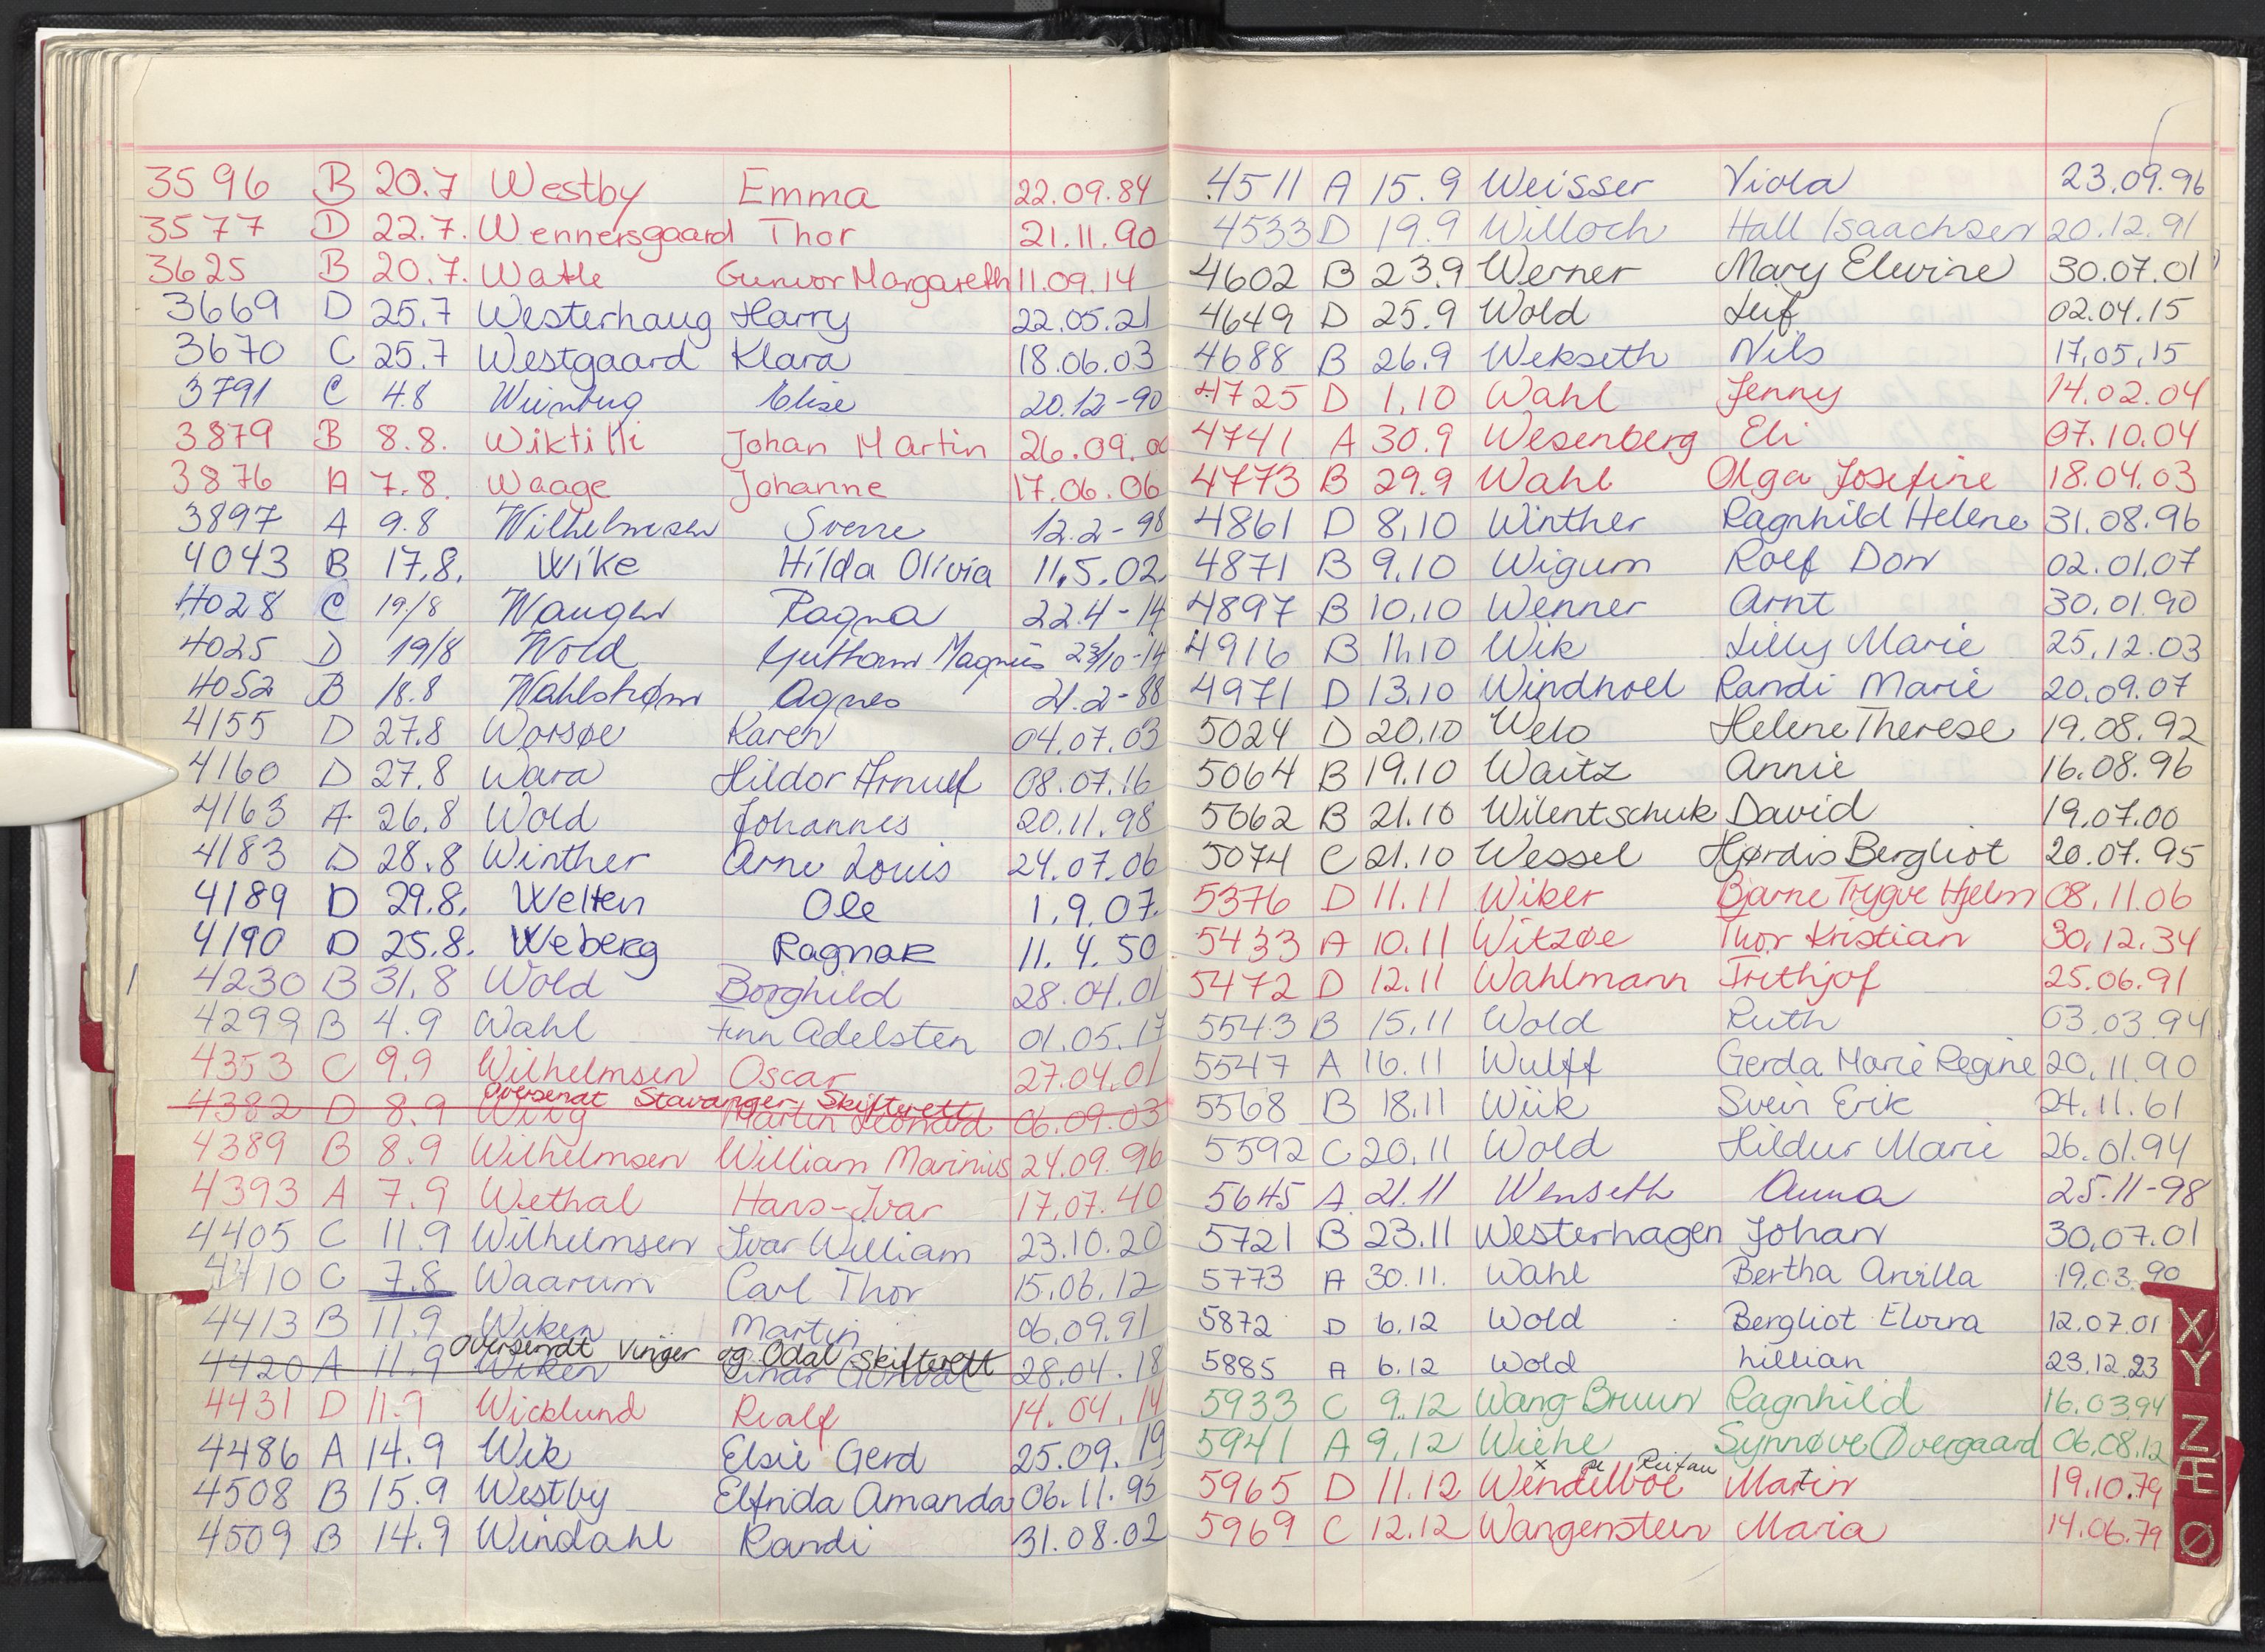 3596 B 20.7 Westby Emma 22.09.84
3577 D 22.7. Wennersgaard Thor 21.11.90
3625 B 20.7. Watle Gunvor Margareth 11.09.14
3669 D 25.7 Westerhaug Harry 22.05.21
3670 C 25.7 Westgaard Klara 18.06.03
3791 C 4.8 Elise 20.12-90
3879 B 8.8. Wiktilli Johan Martin 26.09.00
3876 A 7.8. Waage Johanne 17.06.06
3897 A 9.8 Wilhelmsen Sverre 12.2-98
4043 B 17.8. Wike Hilda Olivia 11.5.02
4028 C 19/8 Wangen Ragna 22.4-14
4025 D 19/8 Wold Magnus 23/10-14
4052 B 18.8 Wahlstrøm Agnes 21.2-88
4155 D 27.8 Worsøe Karen 04.07.03
4160 D 27.8 Wara Hildor Arnulf 08.07.16
4163 A 26.8 Wold Johannes 20.11.98
4183 D 28.8 Winther Arne Louis 24.07.06
4189 D 29.8. Welten Ole 1.9.07.
4190 D 25.8. Weberg Ragnar 11.4.50
4230 B 31.8 Wold Borghild 28.04.01
4299 B 4.9 Wahl Finn Adelsten 01.05.17
4353 C 9.9 Wilhelmsen Oscar 27.04.01
oversendt Stavanger Skifterett
4382 D 8.9 Wiig Martin Leonard 06.09.03
4389 B 8.9 Wilhelmsen William Marinius 24.09.96
4393 A 7.9 Wethal Hans-Ivar 17.07.40
4405 C 11.9 Wilhelmsen Ivar William 23.10.20
4410 C 7.8 Waarum Carl Thor 15.06.12
4413 B 11.9 Wiken Martin 06.09.91
Oversendt Vinger og Odal skifterett
4420 A 11.9 Wiken Einar 28.04.18
4431 D 11.9 Wicklund Rialf 14.04.14
4486 A 14.9 Wik Elsie Gerd 25.09.19
4508 B 15.9 Westby Elfrida Amanda 06.11.95
4509 B 14.9 Windahl Randi 31.08.02
4511 A 15.9 Weisser Viola 23.09.96
4533 D 19.9 Willoch Hall Isaachsen 20.12.91
4602 B 23.9 Werner Mary Elvine 30.07.01
4649 D 25.9 Wold Leif 02.04.15
4688 B 26.9 Wekseth Nils 17.05.15
4725 D 1.10 Wahl Jenny 14.02.04
4741 A 30.9 Wesenberg Eli 07.10.04
4773 B 29.9 Wahl Olga Josefine 18.04.03
4861 D 8.10 Winther Ragnhild Helene 31.08.96
4871 B 9.10 Wigum Rolf Don 02.01.07
4897 B 10.10 Wenner Arnt 30.01.90
4916 B 11.10 Wik Lilly Marie 25.12.03
4971 D 13.10 Windnoel Randi Marie 20.09.07
5024 D 20.10 Welo Helene Therese 19.08.92
5064 B 19.10 Waitz Annie 16.08.96
5062 B 21.10 Wilentschuk David 19.07.00
5074 C 21.10 Wessel Hjørdis Bergliot 20.07.95
5376 D 11.11 Wiker Bjarne Trygve Hjelm 08.11.06
5433 A 10.11 Witzøe Thor Kristian 30.12.34
5472 D 12.11 Wahlmann Frithjof 25.06.91
5543 B 15.11 Wold Ruth 03.03.94
5547 A 16.11 Wulff Gerda Marie Regine 20.11.90
5568 B 18.11 Wiik Svein Erik 24.11.61
5592 C 20.11 Wold Hildur Marie 26.01.94
5645 A 21.11 Wenseth Anna 25.11-98
5721 B 23.11 Westerhagen Johan 30.07.01
5773 A 30.11. Wahl Bertha Arvilla 19.03.90
5872 D 6.12 Wold Bergliot Elvira 12.07.01
5885 A 6.12 Wold Lillian 23.12.23
5933 C 9.12 Wang-Bruun Ragnhild 16.03.94
5941 A 9.12 Wiehe Synnøve Overgaard 06.08.12
5965 D 11.12 Wendelboe Martin 19.10.79
5969 C 12.12 Wangensteen Maria 14.06.79
X
Y
Z
Æ
Ø